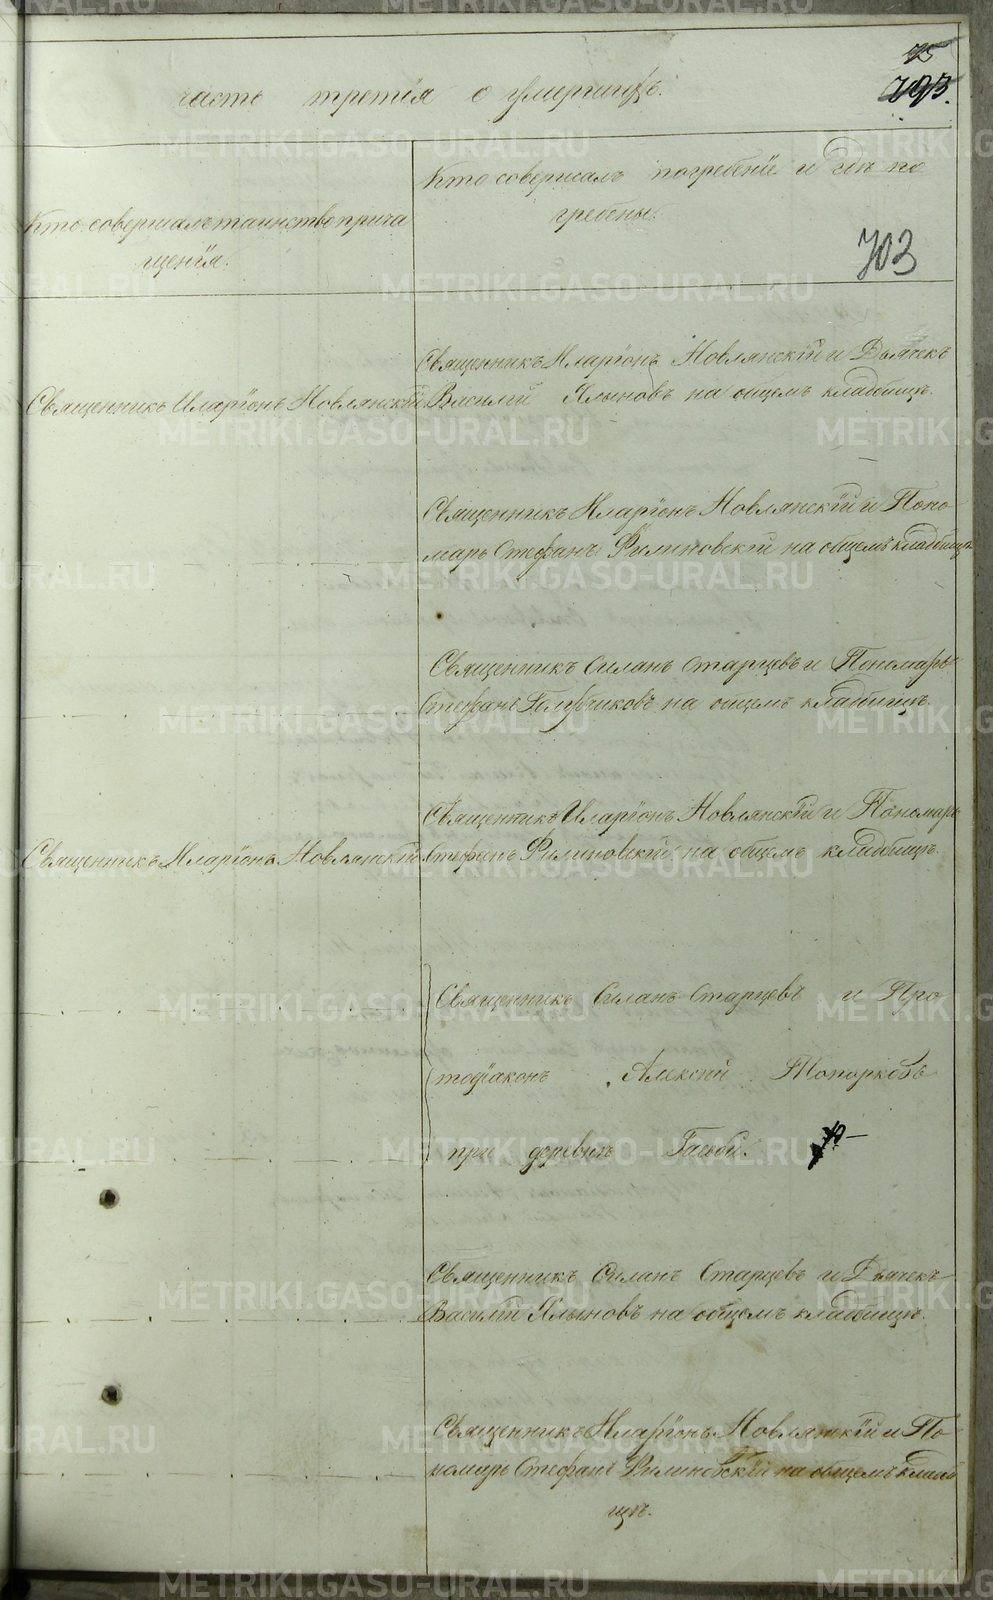 часть третія о умершихъ.
75
293.
Кто совершалъ таинство прича
щенія.
Кто совершалъ погребеніе и гдѣ по
гребены.
703
Священникъ Иларіонъ Новлянскій
Священникъ Иларіонъ Новлянскій и Дьячекъ
Василій на общемъ кладбищѣ.
Священникъ Иларіонъ Новлянскій и Поно
марь Стефанъ Филиновскій на общемъ кладбищѣ
Священникъ Силанъ Старцевъ и Пономарь
Стефанъ на общемъ кладбищѣ.
Священникъ Иларіонъ Новлянскій
Священникъ Иларіонъ Новлянскій и Пономарь
Стефанъ Филиновскій на общемъ кладбищѣ.
Священникъ Силанъ Старцевъ и Про
тодіаконъ Алексій Топорковъ
при деревнѣ
Священникъ Силанъ Старцевъ и Дьячекъ
Василій на общемъ кладбищѣ.
Священникъ Иларіонъ Новлянскій и По-
номарь Стефанъ Филиновскій на общемъ кладби
щѣ.
METRIKI.GASO-URAL.RU